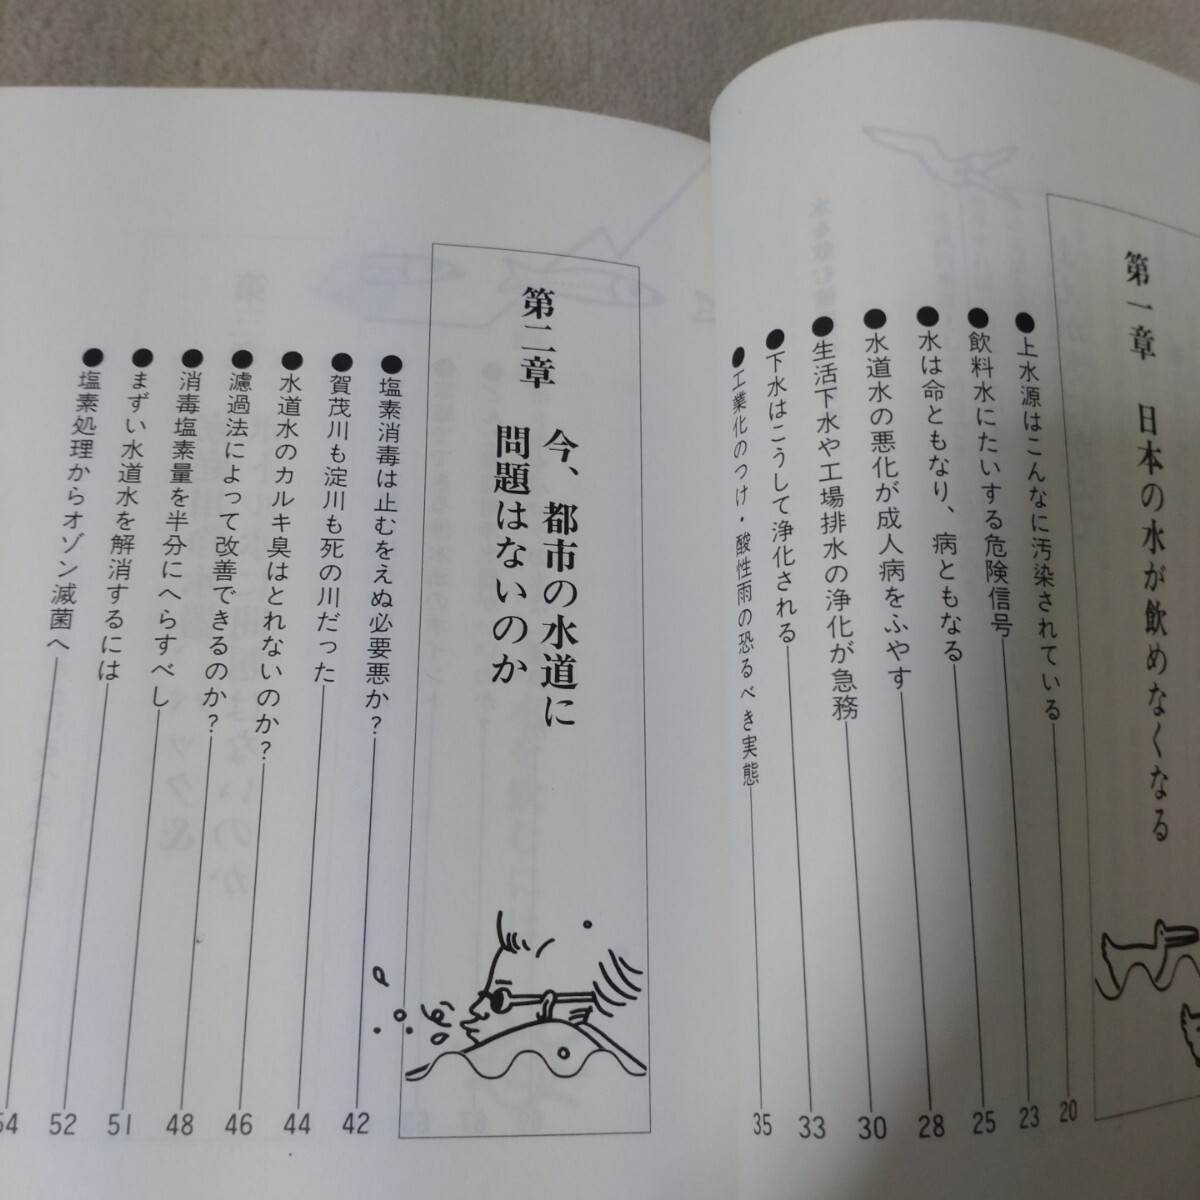 第一章　日本の水が飲めなくなる
●上水源はこんなに汚染されている 20
●飲料水にたいする危険信号 23
●水は命ともなり、病ともなる 25
●水道水の悪化が成人病をふやす 28
●生活下水や工場排水の浄化が急務 30
●下水はこうして浄化される 33
●工業化のつけ・酸性雨の恐るべき実態 35
第二章　今、都市の水道に
問題はないのか
●塩素消毒は止むをえぬ必要悪か? 42
●賀茂川も淀川も死の川だった 44
●水道水のカルキ臭はとれないのか? 46
●濾過法によって改善できるのか? 48
●消毒塩素量を半分にへらすべし 51
●まずい水道水を解消するには 52
●塩素処理からオゾン滅菌へ 54